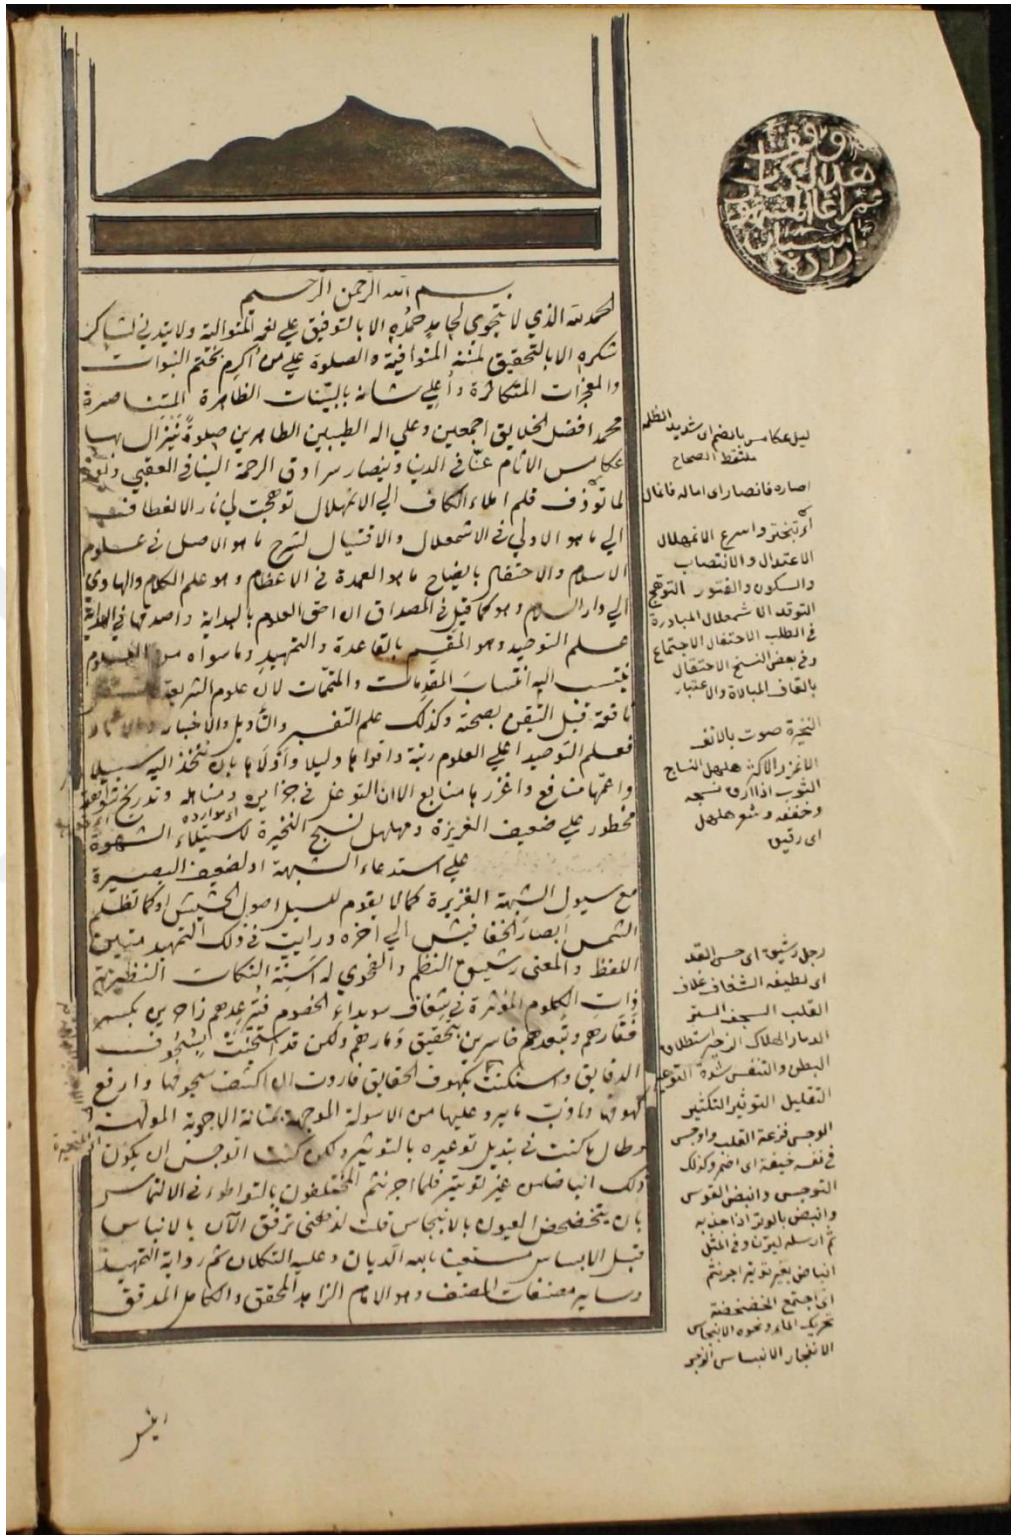 بسم الله الرحمن الرحيم
الحمد لله الذي لا يتجوي لحامد حمده الا بالتوفيق علي نعمه المتوالية ولا يتدني لشاكر
شكره الا بالتحقيق لمننه المتوافية والصلوة علي من اكرم بختم النبوات
والمعجزات المتكاثرة واعلي شانه بالبينات الظاهرة المتناصرة
محمد افضل الخلايق اجمعين وعلي اله الطيبين الطاهرين صلوة تنزال بها
عكامس الاثام عنا في الدنيا وينصار سرادق الرحمة الينا في العقبي
لما توذف قلم املاء الكاف الي الاتمهلال توهجت لي نار الانعطاف
الي ما هو الاولي في الاشمعلال والاقتبال لشرح ما هو الاصل في علوم
الاسلام والاحتفام بايضاح ما هو العمدة في الاعظام وهو علم الكلام والهادي
الي دار السلام وهو كما قيل في المصداق ان احق العلوم بالبداية واصدقها في الهداية
علم التوحيد وهو المقيم بالقاعدة والتمهيد وما سواه من العلوم
ينتسب اليه انتساب المقدمات والمتممات لان علوم الشريعة
نافعة قبل التيقن بصحته وكذلك علم التفسير والتأويل والاخبار
فعلم التوحيد اعلي العلوم رتبة واقواها دليلا واولاها بان يتخذ اليه سبيلا
واعمها منافع واغزرها منابع الا ان التوغل في جزايره ومناهله
محظور علي ضعيف الغريزة ومهلهل نسج النخيرة لاستيلاء الشهوة
علي استدعاء الشبهة او لضعيف البصيرة
مع سيول الشبهة الغزيرة كما لا يقوم للسيل اصول الحشيش او كما تظلم
الشمس ابصار الخفافيش الي اخره ورايت في ذلك التمهيد متين
اللفظ والمعنى رشيق النظم والفحوي له اسنة النكات النظيرية
ذات الكلوم المؤثرة في شغاف سويداء الخصوم فترعدهم زاحرين بكسر
فقارهم وتبعدهم خاسرين بتحقيق دمارهم ولكن قد استجنت بسجوف
الدقايق واستكنت بكهوف الحقايق فاروت ان اكشف سجوفها وارفع
كهوفها وما ذبت ما يرد عليها من الاسولة الموجهة بمتانة الاجوبة المولهة
وطال ما كنت في تبديل توعيره بالتوثير ولكن كنت اتوجس ان يكون
ذلك انباضا من غير توتير فلما اجرنثم المختلفون بالتواطؤ في الالتماس
بان يتخضخض العيون بالانبجاس قلت لذهني ترفق الآن بالانباس
قبل الابساس مستعينا بالله الديان وعليه التكلان ثم رواية التمهيد
وساير مصنفات المصنف وهو الامام الزاهد المحقق والكامل المدقق
وقف
هذا الكتاب
ليل عكامس بالضم اي شديد الظلم
ملتقط الصحاح
اصاره فانصار اي اماله فامال
تبختر واسرع الاتمهلال
الاعتدال والانتصاب
والسكون والفتور التوهج
التوقد الاشمعلال المبادرة
في الطلب الاحتفال الاجتماع
وفي بعض النسخ الاحتقال
بالقاف المبالاة والاعتبار
النخيرة صوت بالانف
الاغزر الاكثر هلهل النساج
الثوب اذا ارق نسجه
وخففه وشعر هلهل
اي رقيق
رجل رشيق اي حسن القد
اي لطيفه الشغاف غلاف
القلب السجف الستر
الدمار الهلاك الزحير استطلاق
البطن والتنفس بشدة التوعير
التقليل التوثير التكثير
الوجس فزعة القلب واوجس
في نفسه خيفة اي اضمر وكذلك
التوجس وانبض القوس
وانبض بالوتر اذا جذبه
ثم ارسله ليرن وفي المثل
انباض بغير توتير اجرنثم
اي اجتمع الخضخضة
تحريك الماء ونحوه الانبجاس
الانفجار الابساس الزجر